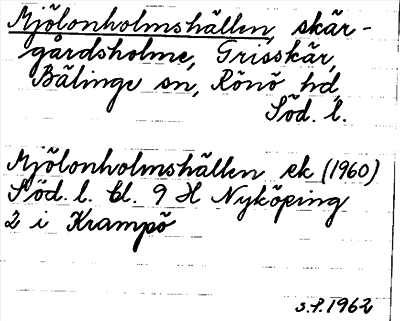 Mjölonholmshällen, skär-
gårdsholme, Grisskär,
Bälinge sn, Rönö hd,
Söd. l.
Mjölonholmshällen ek (1960)
Söd. l. bl. 9 H Nyköping
2 i Krampö
s.P. 1962